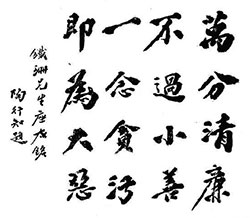 萬分清廉
不過小善
一念貪污
即為大惡
鐵珊兄生座右銘
陶行知題